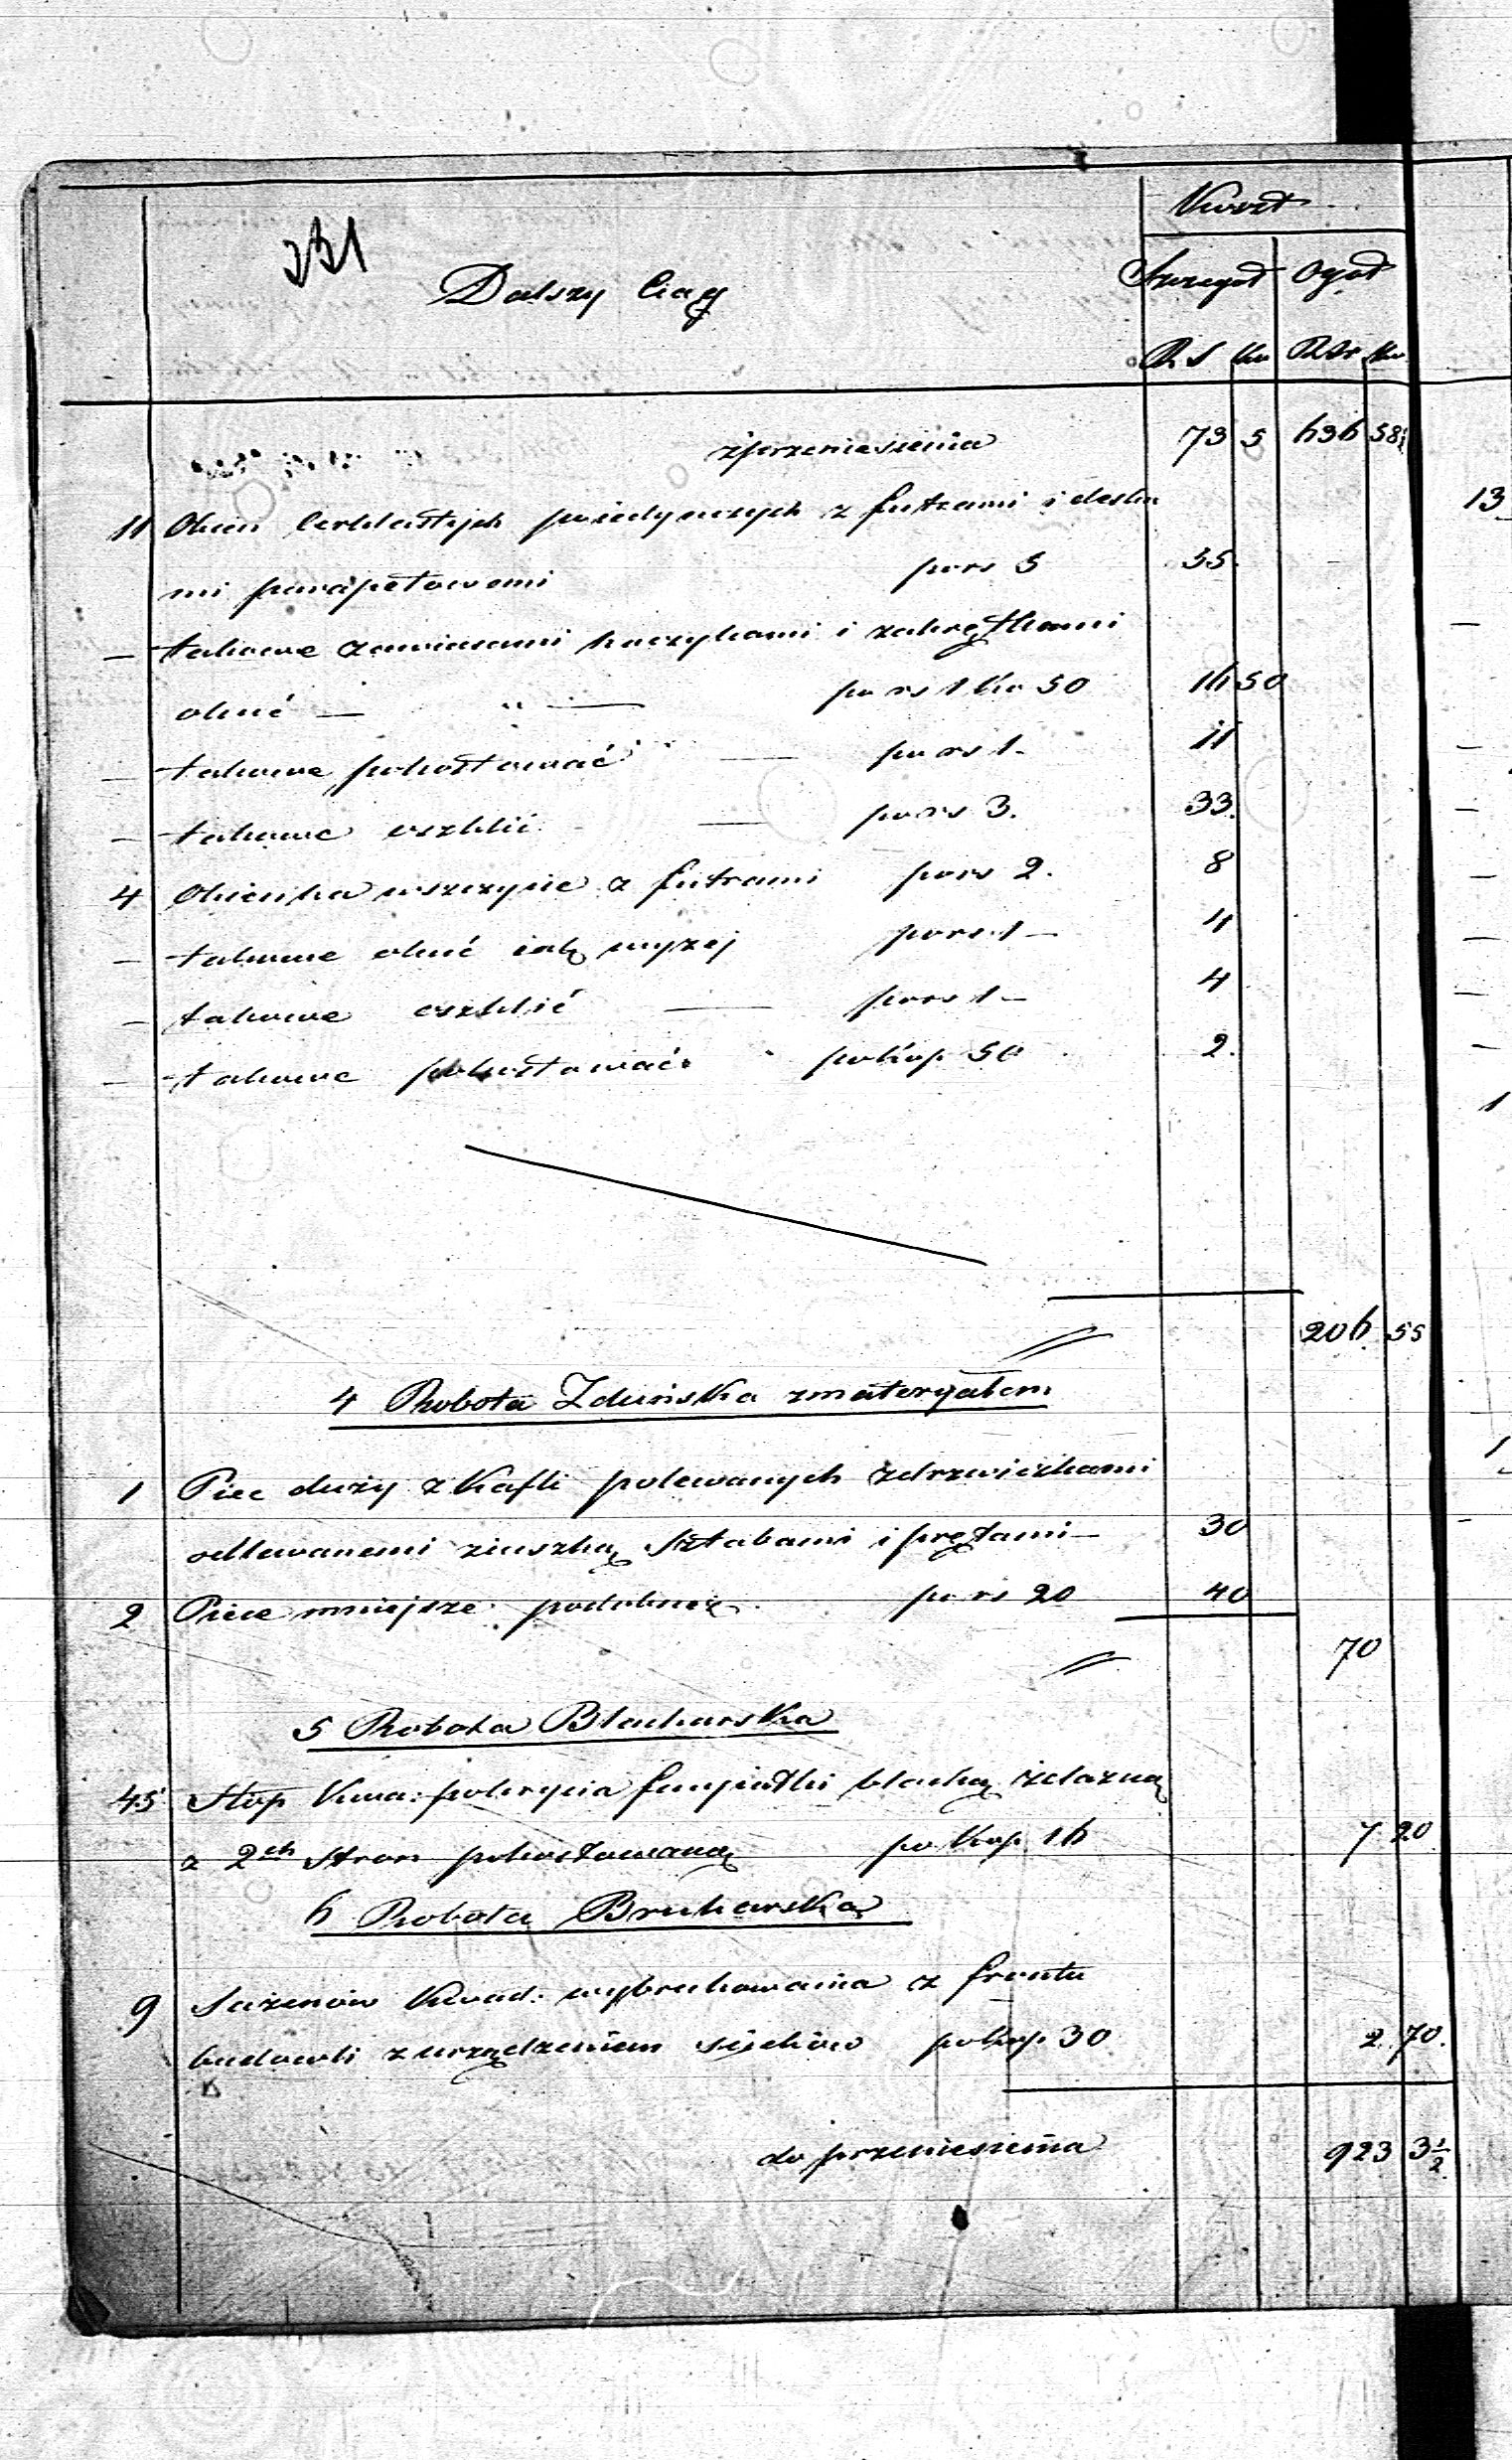 Koszt
331
Dalszy Ciąg Szczegół Ogół
R. S Ko RSr Ko
z przeniesienia 73 5 636 58½
11 Okien pojedynczych z futrami i deska
mi parapetowemi po rs 5 55.
— takowe zawiasami haczykami i zakrętkami
okuć — „ — po rs 1 ko 50 16 50
— takowe pokostować — po rs 1 - 11
— takowe oszklić — po rs 3. 33.
4 Okienka w szczycie z futrami po rs 2. 8
— takowe okuć jak wyżej po rs 1 — 4
— takowe oszklić — po rs 1 — 4
— takowe pokostować po kop 50 2.
206 55
4 Robota Zduńska z materyałem
1 Piec duży z Kafli polewanych z drzwiczkami
odlewanemi z juszką, Sztabami i prętami — 30
2 Piece mniejsze podobneż po rs 20 40
70
5 Robota Blacharska
45 Stóp Kwa: pokrycia facyatki blachą żelazną
z 2ch Stron pokostowaną po Kop 16 7 20
6 Robota Brukarska
9 Sążenów Kwad: wybrukowania z frontu
budowli z urządzeniem ścieków po kop 30 2 70.
do przeniesienia 923 3½